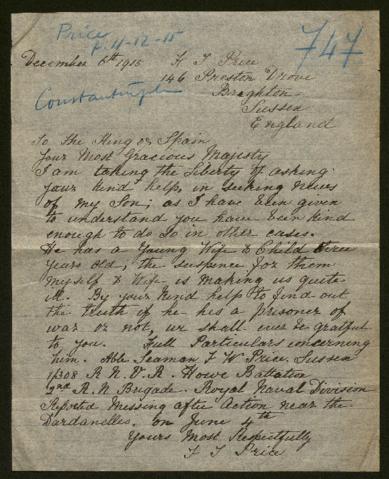 Price
P. 11-12-15
747
December 6th 1915
F T Price
146 Preston Drove
Brighton
Sussex
England
Constantinople
To the King of Spain
Your Most Gracious Majesty
I am taking the Liberty of asking
your kind help, in seeking News
of my Son; as I have been given
to understand you have been kind
enough to do so in other cases.
He has a young Wife & Child three
years old, the suspence for them
Myself & Wife is making us quite
ill. By your kind help to find out
the truth if he his a prisoner of
war or not, we shall ever be grateful
to you. Full Particulars concerning
him. Able Seaman F W Price. Sussex
1/308 R.N.V.R. Howe Battalion
2nd R.N Brigade. Royal Naval Division
Reported Missing after Action near the
Dardanelles. on June 4th
Yours Most Respectfully
F T Price